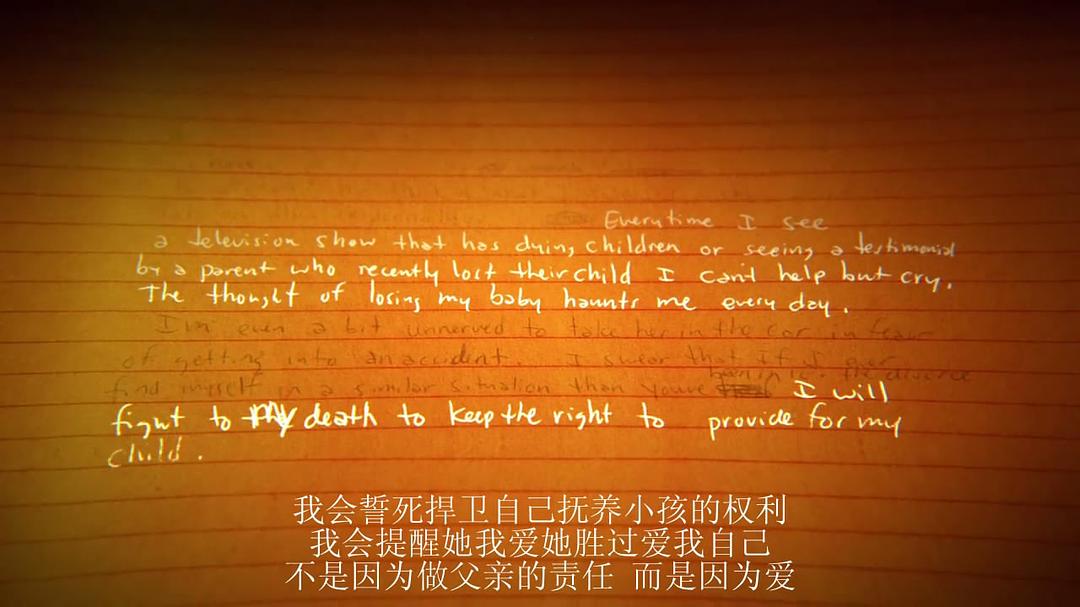 Everytime I see
a television show that has dying children or seeing a testimonial
by a parent who recently lost their child I can't help but cry.
The thought of losing my baby haunts me every day.
I'm even a bit unnerved to take her in the car in fear
of getting into an accident. I swear that if I ever
find myself in a similar situation than youve I will
fight to my death to keep the right to provide for my
child.
我会誓死捍卫自己抚养小孩的权利
我会提醒她我爱她胜过爱我自己
不是因为做父亲的责任 而是因为爱